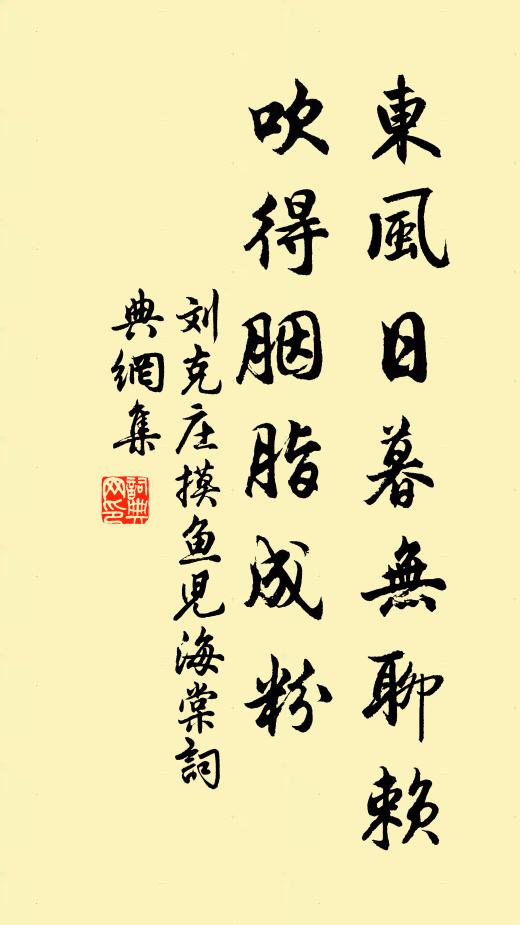 東風日暮無聊賴
吹得胭脂成粉
刘克庄摸鱼児海棠詞
典網集
詞典网印